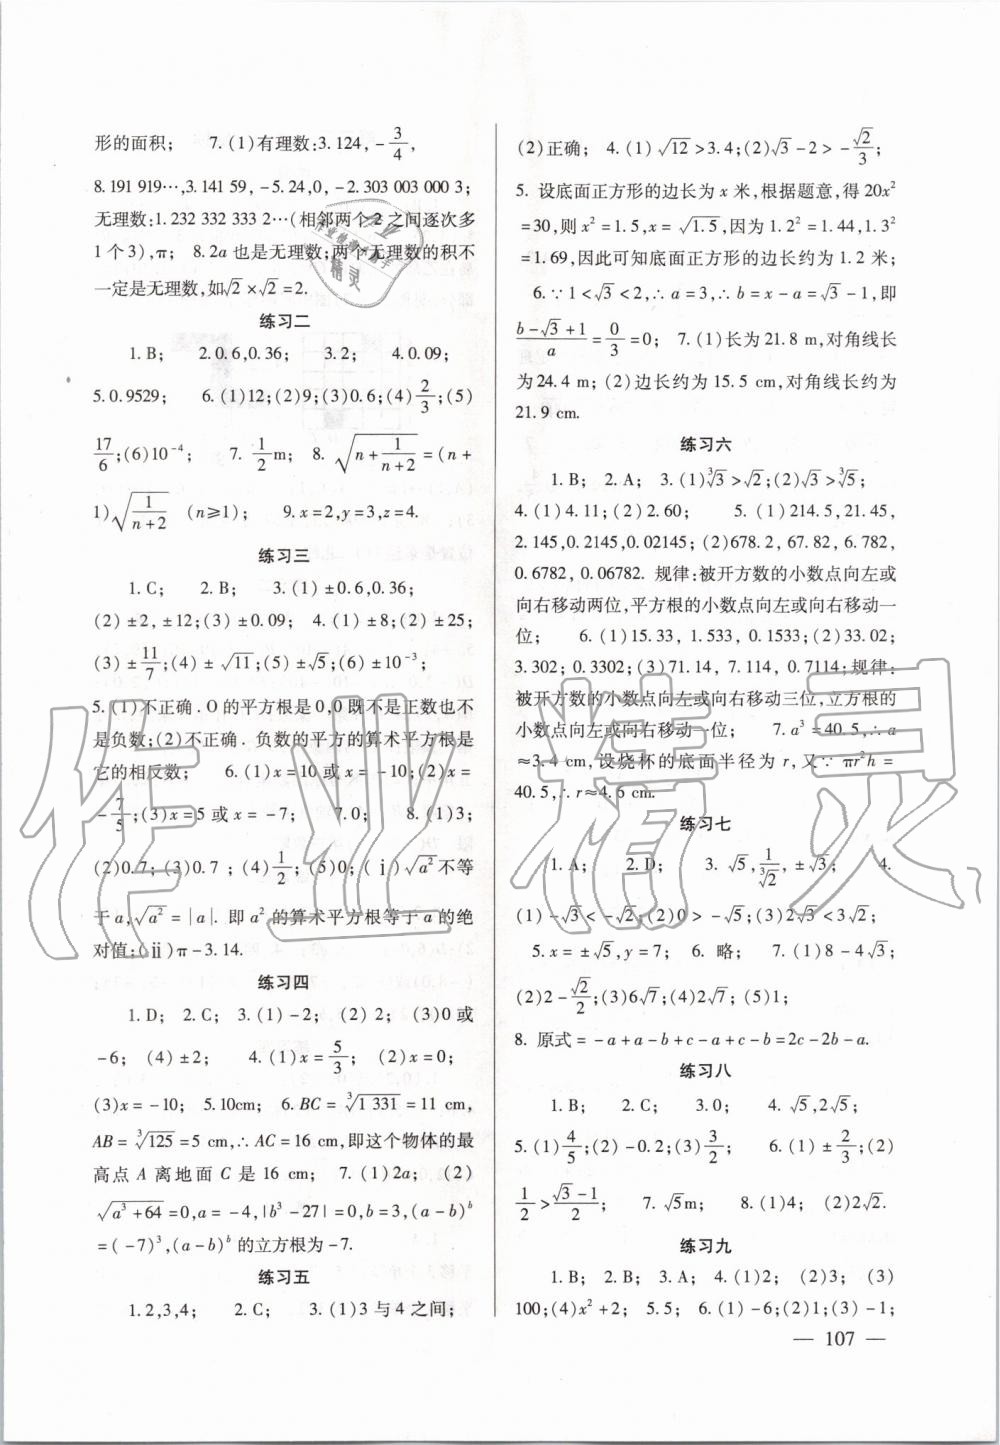 形的面积; 7.(1)有理数:3.124,-3/4,
8.191 919…,3.141 59,-5.24,0,-2.303 003 000 3;
无理数:1.232 332 333 2…(相邻两个2之间逐次多
1个3),π; 8.2a也是无理数;两个无理数的积不
一定是无理数,如√2×√2=2.
练习二
1.B; 2.0.6,0.36; 3.2; 4.0.09;
5.0.9529; 6.(1)12;(2)9;(3)0.6;(4)2/3;(5)
17/6;(6)10⁻⁴; 7.1/2m; 8.√(n+1/(n+2))=(n+
1)√(1/(n+2)) (n≥1); 9.x=2,y=3,z=4.
练习三
1.C; 2.B; 3.(1)±0.6,0.36;
(2)±2,±12;(3)±0.09; 4.(1)±8;(2)±25;
(3)±11/7;(4)±√11;(5)±√5;(6)±10⁻³;
5.(1)不正确.O的平方根是0,0既不是正数也不
是负数;(2)不正确.负数的平方的算术平方根是
它的相反数; 6.(1)x=10或x=-10;(2)x=
-7/5;(3)x=5或x=-7; 7.0; 8.(1)3;
(2)0.7;(3)0.7;(4)1/2;(5)0;(ⅰ)√a²不等
于a,√a²=|a|.即a²的算术平方根等于a的绝
对值;(ⅱ)π-3.14.
练习四
1.D; 2.C; 3.(1)-2; (2)2; (3)0或
-6; (4)±2; 4.(1)x=5/3; (2)x=0;
(3)x=-10; 5.10cm; 6.BC=∛1 331=11 cm,
AB=∛125=5 cm,∴AC=16 cm,即这个物体的最
高点A离地面C是16 cm; 7.(1)2a; (2)
√(a³+64)=0,a=-4,|b³-27|=0,b=3,(a-b)ᵇ
=(-7)³,(a-b)ᵇ的立方根为-7.
练习五
1.2,3,4; 2.C; 3.(1)3与4之间;
(2)正确; 4.(1)√12>3.4;(2)√3-2>-√2/3;
5. 设底面正方形的边长为x米,根据题意,得20x²
=30,则x²=1.5,x=√1.5,因为1.2²=1.44,1.3²
=1.69,因此可知底面正方形的边长约为1.2米;
6.∵1<√3<2,∴a=3,∴b=x-a=√3-1,即
(b-√3+1)/a=0/3=0; 7.(1)长为21.8 m,对角线长
为24.4 m;(2)边长约为15.5 cm,对角线长约为
21.9 cm.
练习六
1.B; 2.A; 3.(1)∛3>√2;(2)√5>∛5;
4.(1)4.11;(2)2.60; 5.(1)214.5,21.45,
2.145,0.2145,0.02145;(2)678.2,67.82,6.782,
0.6782,0.06782.规律:被开方数的小数点向左或
向右移动两位,平方根的小数点向左或向右移动一
位; 6.(1)15.33,1.533,0.1533;(2)33.02;
3.302;0.3302;(3)71.14,7.114,0.7114;规律:
被开方数的小数点向左或向右移动三位,立方根的
小数点向左或向右移动一位; 7.a³=40.5,∴a
≈3.4 cm,设烧杯的底面半径为r,又∵πr²h=
40.5,∴r≈4.6 cm.
练习七
1.A; 2.D; 3.√5,1/∛2,±√3; 4.
(1)-√3<-√2;(2)0>-√5;(3)2√3<3√2;
5.x=±√5,y=7; 6.略; 7.(1)8-4√3;
(2)2-√2/2;(3)6√7;(4)2√7;(5)1;
8. 原式=-a+a-b+c-a+c-b=2c-2b-a.
练习八
1.B; 2.C; 3.0; 4.√5,2√5;
5.(1)4/5;(2)-0.2;(3)3/2; 6.(1)±2/3;(2)
1/2>(√3-1)/2; 7.√5m; 8.(1)4; (2)2√2.
练习九
1.B; 2.B; 3.A; 4.(1)2; (2)3; (3)
100;(4)x²+2; 5.5; 6.(1)-6;(2)1;(3)-1;
— 107 —
作业精灵